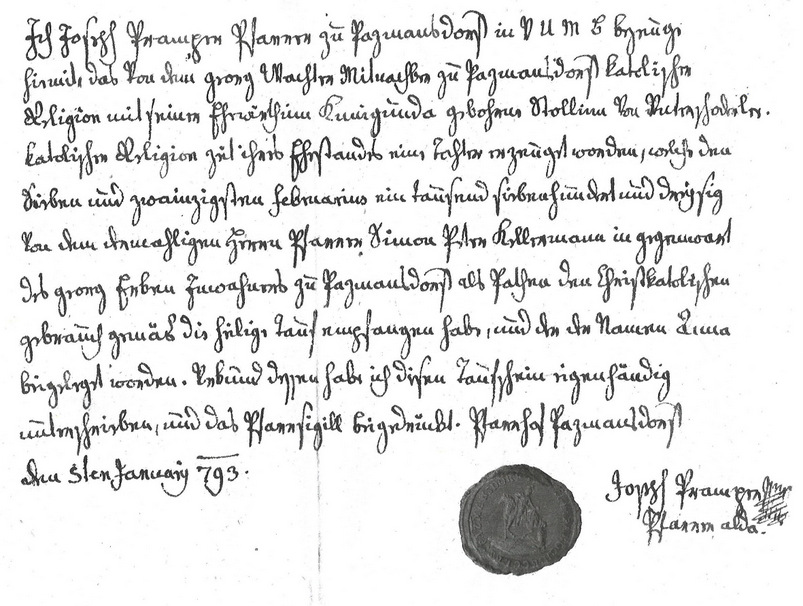 Ich Joseph Pramper Pfarrer zu Pazmansdorf in V U M B bezeuge
hiemit, das von dem georg Wachter Mitnachber zu Pazmansdorf katolischer
Religion mit seiner Ehewürthinn Kunigunda gebohrne Stollinn von
katolischer Religion Ehestandes eine Tahter erzeüget worden, welche den
Sieben und zwainzigsten februarius ein taüsend siebenhundert und dreysig
von dem damahligen Herrn Pfarrer Simon Peter Kellermann in gegenwart
des georg Inwohners zu Pazmansdorf als Pathen den Christkatolischen
gebraüch gemäs die heilige Tauf empfangen habe, und der der Namen Anna
beigeleget worden. dessen habe ich disen Taufschein eigenhändig
unterschrieben, und das Pfarrsigill beigedrukt. Pfarrhof Pazmansdorf
den 5ten January 793.
Joseph Pramper
Pfarrer alda.